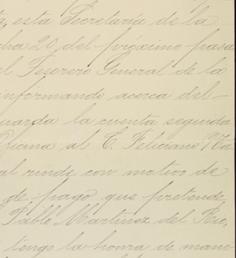 esta Secretaría de la
cha 20 del próximo pasa
el Tesorero General de la
informando acerca del
uarda la cuenta seguida
oficina al C. Feliciano
al rinde, con motivo de
de pago que pretende
Pablo Martinez del Rio,
tengo la honra de mani